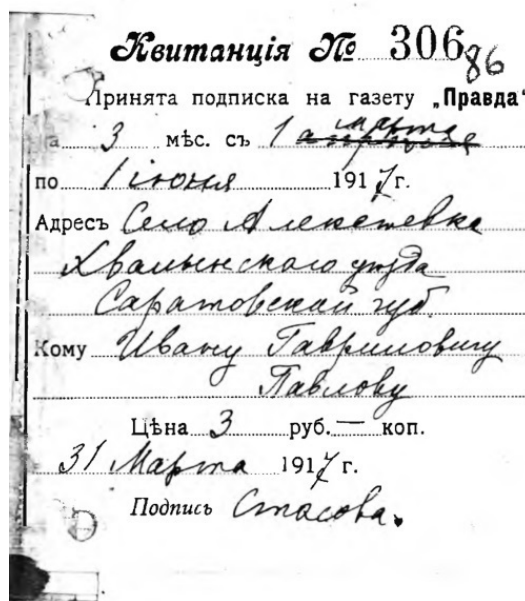 Квитанція № 306
86
Принята подписка на газету „Правда“
на 3 мѣс. съ 1 апрѣля марта
по 1 іюня 1917 г.
Адресъ Село Алексѣевка
Хвалынскаго уѣзда
Саратовской губ.
Кому Ивану Гавриловичу
Павлову
Цѣна 3 руб. — коп.
31 Марта 1917 г.
Подпись Стасова.